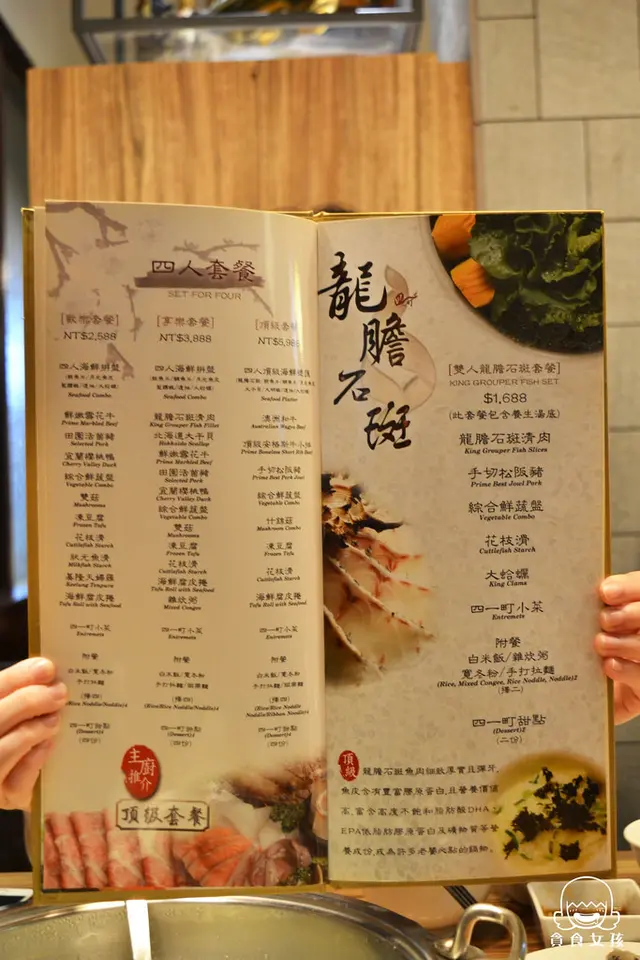 四人套餐
SET FOR FOUR
[歡樂套餐]
NT$2,588
四人海鮮拼盤
Seafood Combo
鮮嫩雪花牛
Prime Marbled Beef
田園活菌豬
Selected Pork
宜蘭櫻桃鴨
Cherry Valley Duck
綜合鮮蔬盤
Vegetable Combo
雙菇
Mushrooms
凍豆腐
Frozen Tofu
花枝漿
Cuttlefish Starch
虱光魚漿
Milkfish Starch
基隆天婦羅
Keelung Tempura
海鮮腐皮捲
Tofu Roll with Seafood
四一町小菜
Entremets
附餐
白米飯/寬冬粉
手打拉麵
(擇四)
(Rice/Rice Noddle/Noddle)4
四一町甜點
(Dessert)4
(四份)
[享樂套餐]
NT$3,888
四人海鮮拼盤
Seafood Combo
龍膽石斑清肉
King Grouper Fish Fillet
北海道大干貝
Hokkaido Scallop
鮮嫩雪花牛
Prime Marbled Beef
田園活菌豬
Selected Pork
宜蘭櫻桃鴨
Cherry Valley Duck
綜合鮮蔬盤
Vegetable Combo
雙菇
Mushrooms
凍豆腐
Frozen Tofu
花枝漿
Cuttlefish Starch
海鮮腐皮捲
Tofu Roll with Seafood
雜炊粥
Mixed Congee
四一町小菜
Entremets
附餐
白米飯/寬冬粉
手打拉麵/
(擇四)
四一町甜點
(Dessert)4
(四份)
[頂級套
NT$5,98
四人頂級海鮮
Seafood Platter
澳洲和牛
Australian Wagyu Beef
頂級安格斯牛小排
Prime Boneless Short Rib Beef
手切松阪豬
Prime Best Jowl Pork
綜合鮮蔬盤
Vegetable Combo
什錦菇
Mushroom Combo
凍豆腐
Frozen Tofu
花枝漿
Cuttlefish Starch
海鮮腐皮捲
Tofu Roll with Seafood
四一町小菜
Entremets
附餐
白米飯/寬冬粉
手打拉麵/
(擇四)
四一町甜點
(Dessert)4
(四份)
主廚推介
頂級套餐
龍膽石斑
[雙人龍膽石斑套餐]
KING GROUPER FISH SET
$1,688
(此套餐包含養生湯底)
龍膽石斑清肉
King Grouper Fish Slices
手切松阪豬
Prime Best Jowl Pork
綜合鮮蔬盤
Vegetable Combo
花枝漿
Cuttlefish Starch
大蛤蠣
King Clams
四一町小菜
Entremets
附餐
白米飯/雜炊粥
寬冬粉/手打拉麵
(Rice, Mixed Congee, Rice Noddle, Noddle)2
(擇二)
四一町甜點
(Dessert)2
(二份)
頂級
龍膽石斑魚肉細緻厚實且彈牙,
魚皮含有豐富膠原蛋白,且營養價值
高,富含高度不飽和脂肪酸DHA及
EPA低脂肪膠原蛋白及礦物質等營
養成份,成為許多老饕心點的鍋物。
貪食女孩